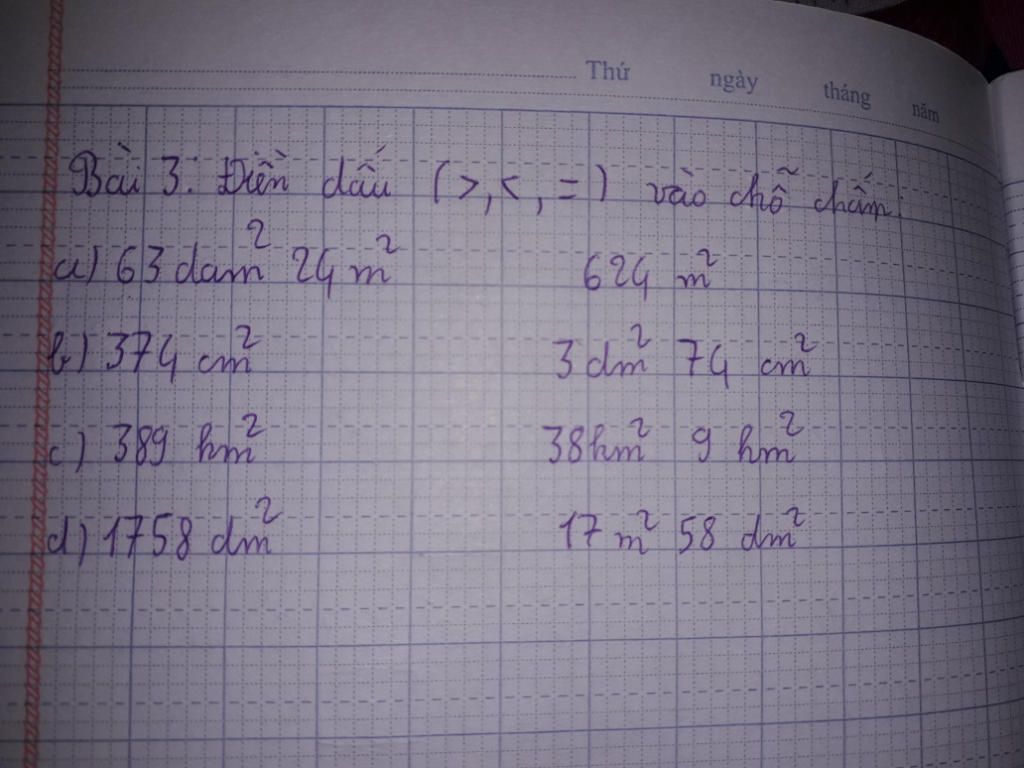 Thứ ngày tháng năm
Bài 3: Điền dấu (>, <, =) vào chỗ chấm:
a) 63 dam² 24 m² 624 m²
b) 374 cm² 3 dm² 74 cm²
c) 389 hm² 38hm² 9 hm²
d) 1758 dm² 17 m² 58 dm²